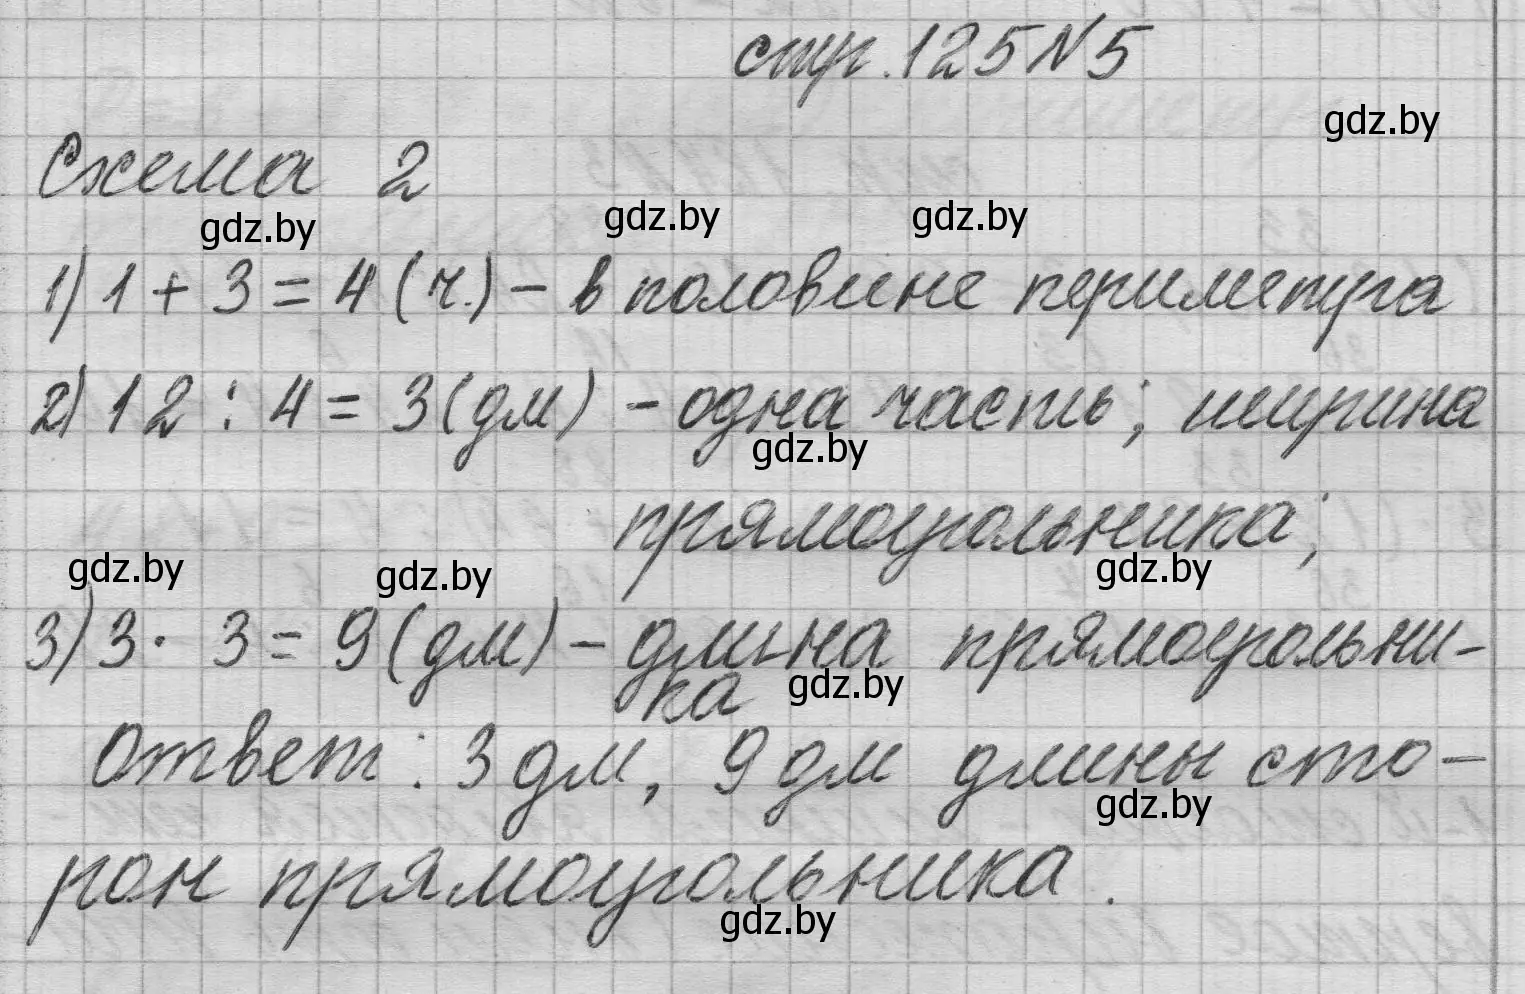 стр. 125 N 5
gdz.by
Схема 2
gdz.by gdz.by gdz.by
1) 1 + 3 = 4 (ч.) - в половине периметра
2) 12 : 4 = 3 (дм) - одна часть; ширина
gdz.by
прямоугольника;
gdz.by gdz.by gdz.by
3) 3 · 3 = 9 (дм) - длина прямоугольни-
ка gdz.by
Ответ: 3 дм, 9 дм длины сто-
gdz.by
рон прямоугольника.
gdz.by